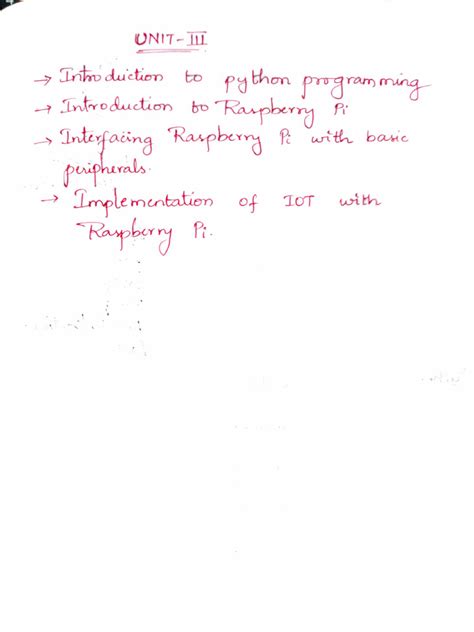 UNIT-III
→ Introduction to python programming
→ Introduction to Raspberry Pi
→ Interfacing Raspberry Pi with basic
peripherals.
→ Implementation of IOT with
Raspberry Pi.